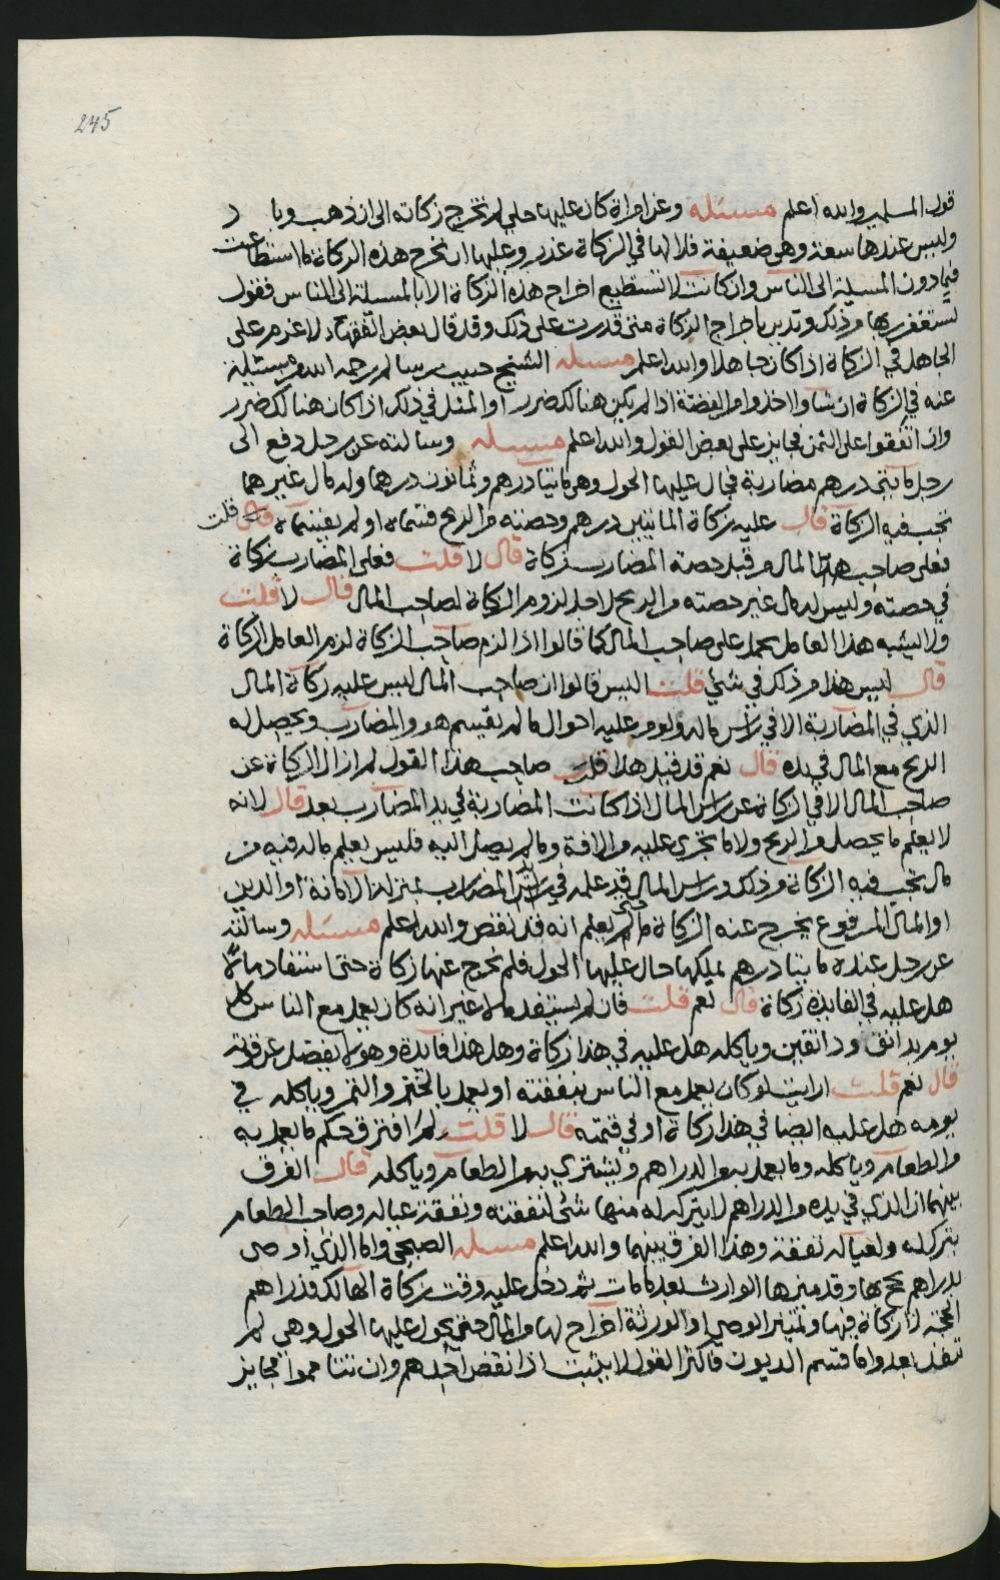 245
قول المسلمين والله اعلم مسئله وعن امراة كان عليها حلي لم تخرج زكاته الى ان ذهب وباد
وليس عندها سعة وهي ضعيفة فلا لها في الزكاة عذر وعليها ان تخرج هذه الزكاة ما استطاعت
فيما دون المسيلة الى الناس وان كانت لا تستطيع اخراج هذه الزكاة الا بالمسيلة الى الناس فقول
تستغفر ربها من ذلك وتدين باخراج الزكاة متى قدرت على ذلك وقد قال بعض الفقهاء لا غرم على
الجاهل في الزكاة اذا كان جاهلا والله اعلم مسئله الشيخ حبيب بن سالم رحمه الله ومن مسئلة
عنه في الزكاة ان شاوا اخذوا من الفضة اذا لم يكن هنالك ضرر او المثل في ذلك اذا كان هنالك ضرر
وان اتفقوا على الثمن فجايز على بعض القول والله اعلم مسئله وسالته عن رجل دفع الى
رجل مايتى درهم مضاربة فحال عليها الحول وهي مايتا درهم وثمانون درهما وله مال غيرهما
تجب فيه الزكاة قال عليه زكاة المايتين درهم وحصته من الربح قسماه او لم يقسماه قلت
فعلى صاحب هذا المال من قبل حصة المضارب زكاة قال لا قلت فعلى المضارب زكاة
في حصته وليس له مال غير حصته من الربح لاجل لزوم الزكاة لصاحب المال قال لا قلت
ولا يشبه هذا العامل يحمل على صاحب المال كما قالوا اذا لزم صاحب الزكاة لزم العامل الزكاة
قال ليس هذا من ذلك في شئي قلت اليس قالوا ان صاحب المال ليس عليه زكاة المال
الذي في المضاربة الا في راس ماله ولو مر عليه احوال ما لم يقسم هو والمضارب ويحصل له
الربح مع المال في يده قال نعم قد قيل هذا قلت صاحب هذا القول لم ازال الزكاة عن
صاحب المال الا في الزكاة عن راس المال اذا كانت المضاربة في يد المضارب بعد قال لانه
لا يعلم ما يحصل من الربح ولا ما تجرى عليه من الافة وما لم يصل اليه فليس يعلم ماله فيه من
مال تجب فيه الزكاة من ذلك وراس المال قد علمه في المضارب بمنزلة الامانة او الدين
او المال المرفوع يخرج عنه الزكاة ما لم يعلم انه قد نقص والله اعلم مسئله وسالته
عن رجل عنده مايتا درهم يملكها حال عليها الحول فلم يخرج عنها زكاة حتى استفاد مالا
هل عليه في الفايدة زكاة قال نعم قلت فان لم يستفد مالا غير انه كان يعمل مع الناس كل
يوم بدانق ودانقين وياكله هل عليه في هذا زكاة وهل هذا فايدة وهو لا يفضل عن قوته
قال نعم قلت ارايت لو كان يعمل مع الناس بنفقته او يعمل بالخبز والتمر وياكله في
يومه هل عليه ايضا في هذا زكاة او في قيمته قال لا قلت لم افترق حكم ما يعمل به
من الطعام وياكله وما يعمل به من الدراهم ويشتري به من الطعام وياكله قال الفرق
بينهما ان الذي في يده من الدراهم لا يترك له منها شئ لنفقته ونفقة عياله وصاحب الطعام
يترك له ولعياله نفقة وهذا الفرق بينهما والله اعلم مسئله الصبحي واما الذي اوصى
بدراهم يحج بها وقد ميزها الوارث بعد ما مات ثم دخل عليه وقت زكاة الهالك فدراهم
الحجة لا زكاة فيها وتمييز الوصي او الورثة اخراج لها من المال حتى يحول عليها الحول وهي لم
تنفذ بعد واما قسم الديون فاكثر القول لا يثبت اذا نقض احدهم وان تتامموا فجايز